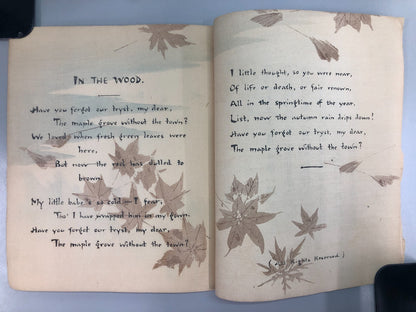 IN THE WOOD.
Have you forgot our tryst, my dear,
The maple grove without the town?
We loved when fresh green leaves were
here,
But now the red has dulled to
brown.
My little babe's so cold - I fear,
Tho' I have wrapped him in my gown.
Have you forgot our tryst, my dear,
The maple grove without the town?
I little thought, so you were near,
Of life or death, or fair renown,
All in the springtime of the year.
List, now the autumn rain drips down!
Have you forgot our tryst, my dear,
The maple grove without the town?
(All Rights Reserved)